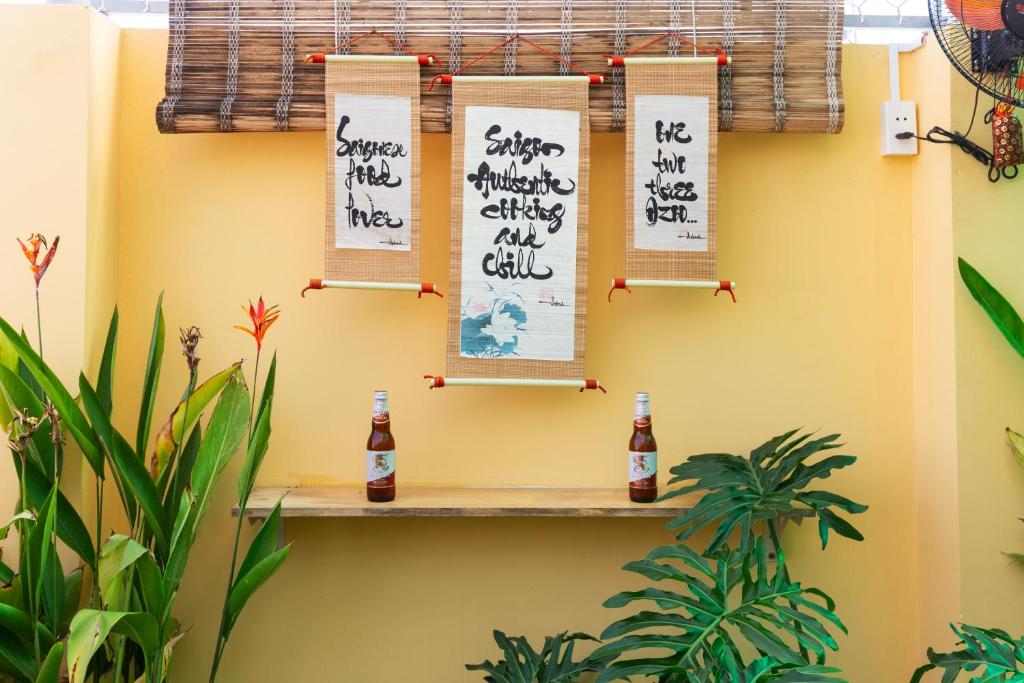 Saigonese
food
lover
Saigon
Authentic
cooking
and
Chill
One
two
three
DZO...